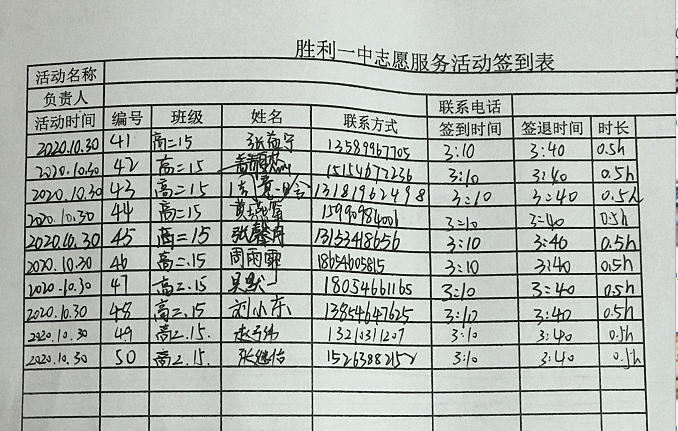 胜利一中志愿服务活动签到表
活动名称
负责人 联系电话
活动时间 编号 班级 姓名 联系方式 签到时间 签退时间 时长
2020.10.30 41 高二15 张益宁 13589967705 3:10 3:40 0.5h
2020.10.30 42 高二15 15154677236 3:10 3:40 0.5h
2020.10.30 43 高二15 13181962498 3:10 3:40 0.5h
2020.10.30 44 高二15 15990984001 3:10 3:40 0.5h
2020.10.30 45 高二.15 张馨丹 13153418656 3:10 3:40 0.5h
2020.10.30 46 高二.15 周雨霏 18654605815 3:10 3:40 0.5h
2020.10.30 47 高二.15 吴默一 18054661165 3:10 3:40 0.5h
2020.10.30 48 高二.15 刘小东 13854647625 3:10 3:40 0.5h
2020.10.30 49 高二.15. 13210311207 3:10 3:40 0.5h
2020.10.30 50 高二.15. 张继怡 15263882152 3:10 3:40 0.5h